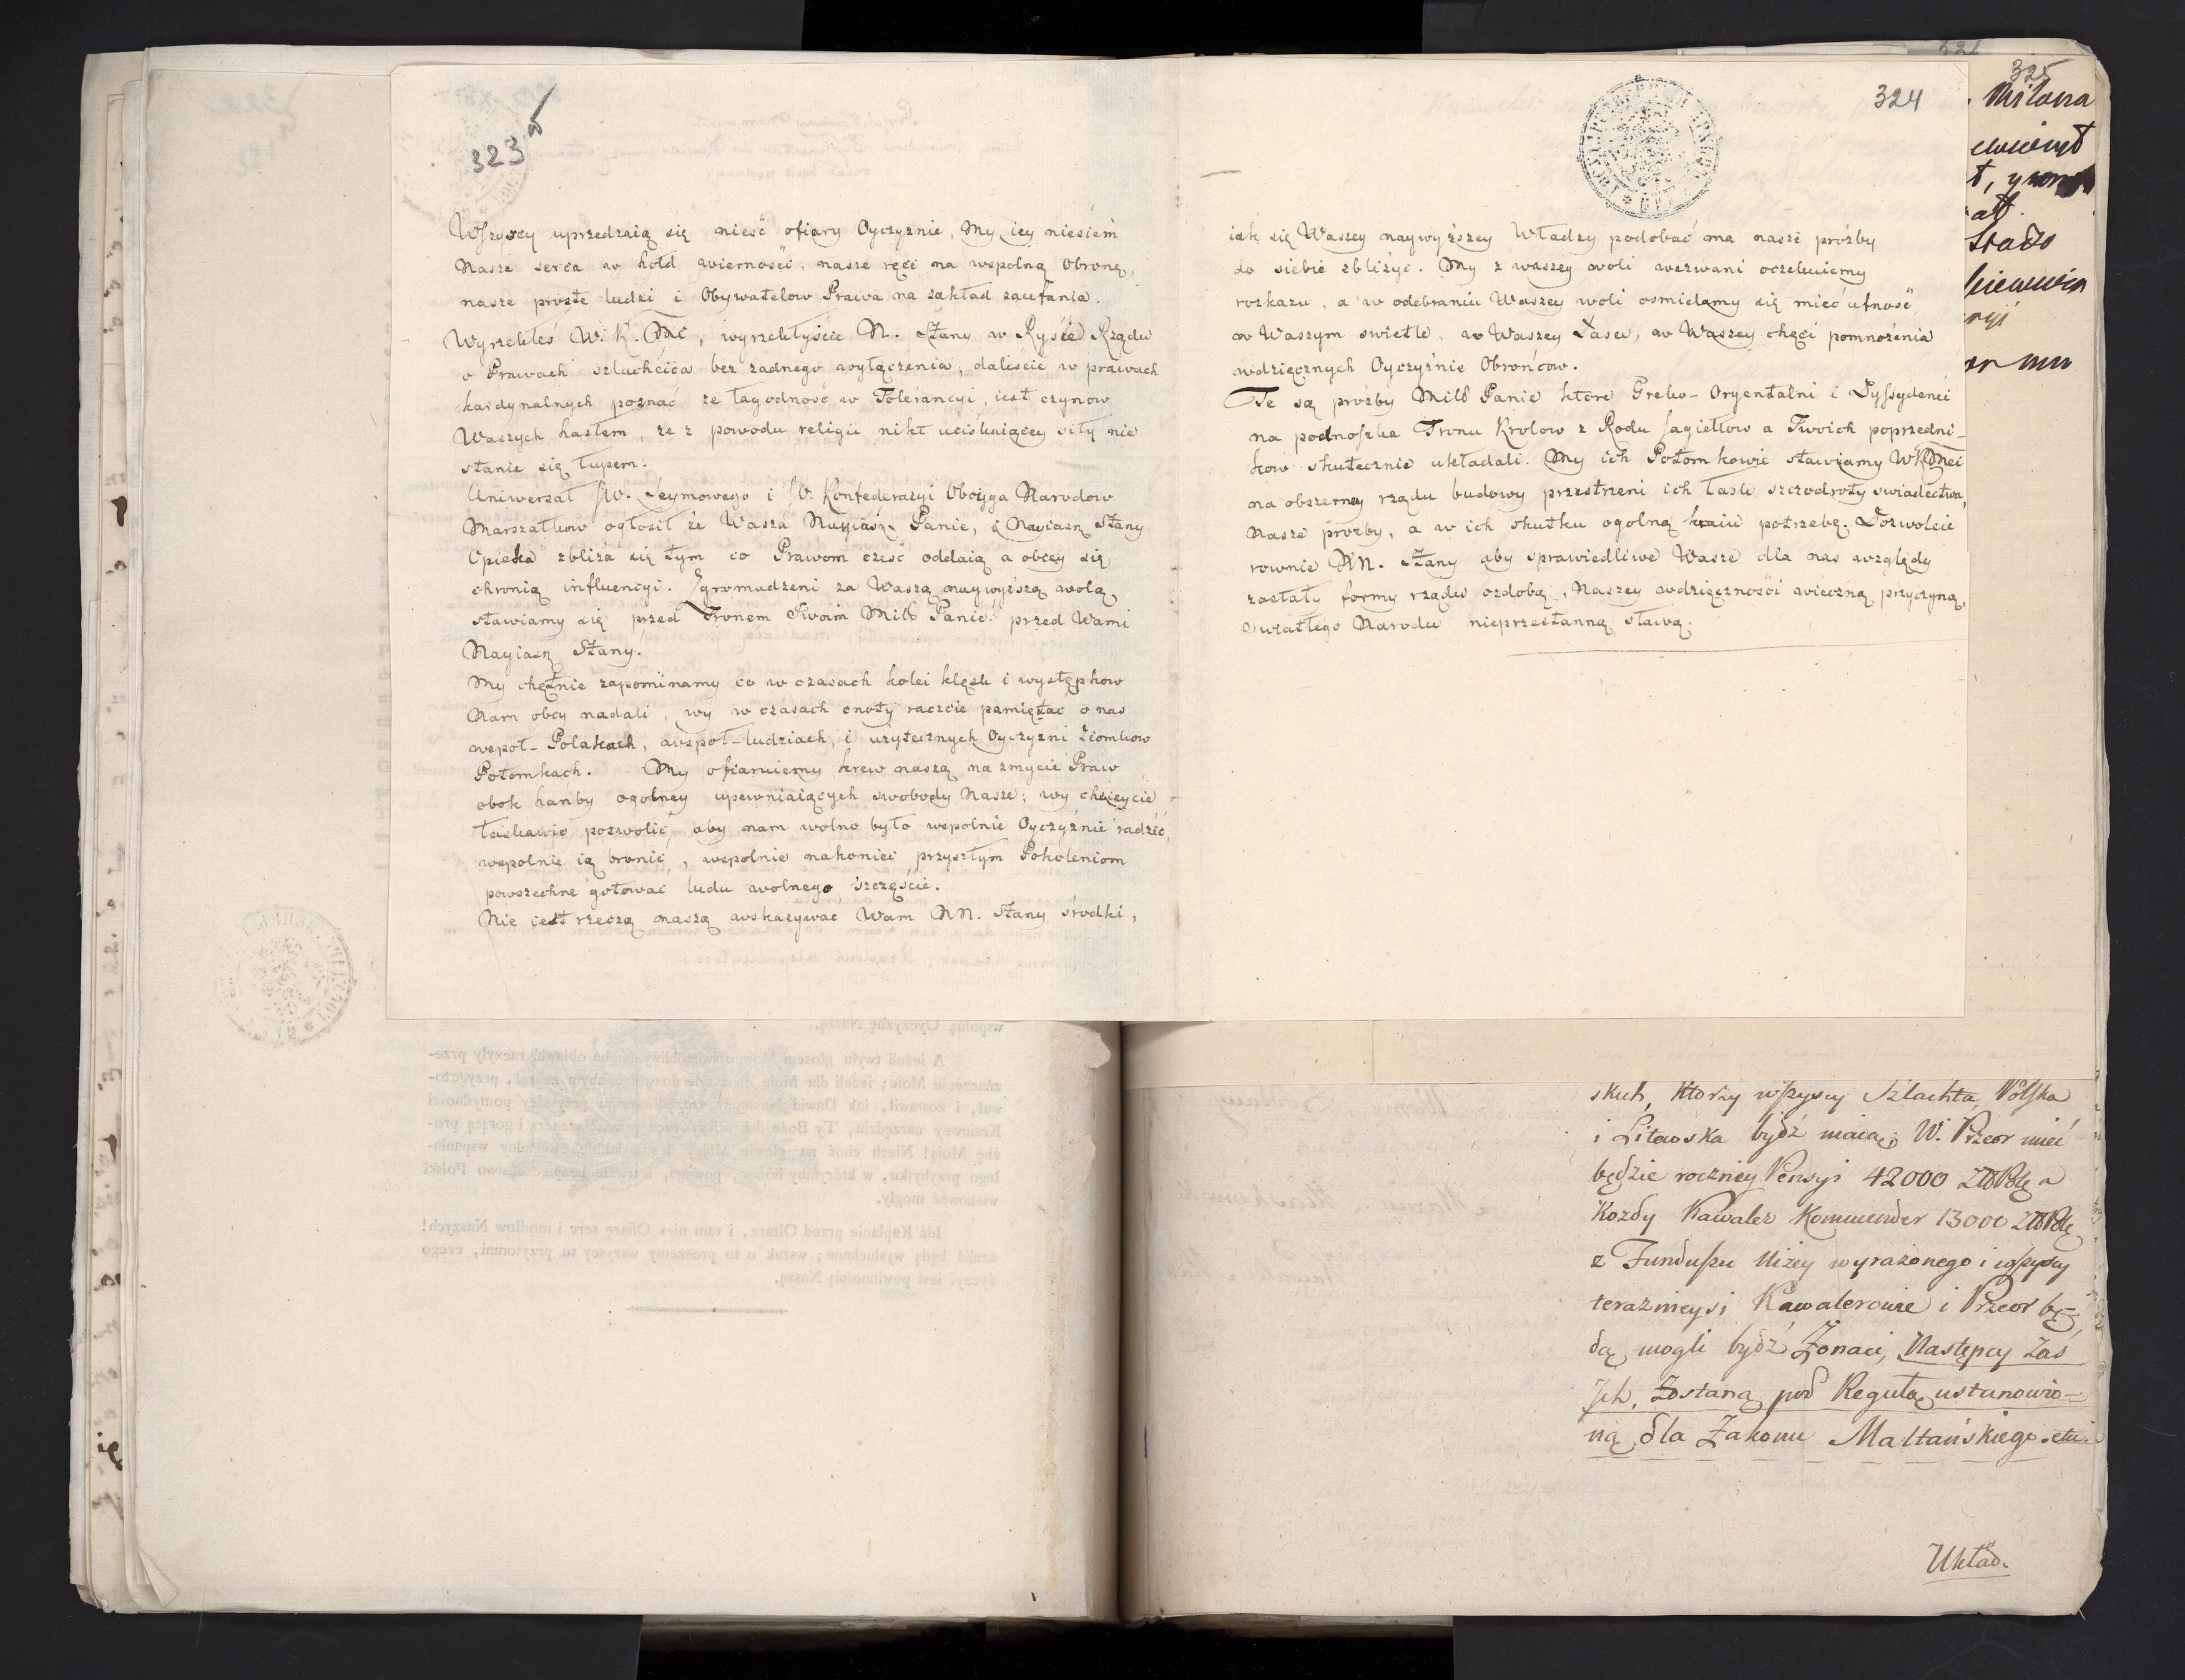 323
Wszyscy uprzedzaią się nieść ofiary Oyczyznie, My iey niesiem
Nasze serca w hołd wierności, nasze ręce na wspolną Obronę,
nasze proste ludzi i Obywatelow Prawa na zakład zaufania.
Wyrzekłeś W. K. Mć, wyrzekłyście N. Stany w Rysie Rządu
o Prawach szlachcica bez zadnego wyłączenia, daliscie w prawach
kardynalnych poznać ze łagodność w Tolerancyi, iest czynow
Waszych hasłem, ze z powodu religii nikt uciskaiącey siły nie
stanie się łupem.
Uniwerzał JW. Seymowego i JW. Konfederacyi Oboyga Narodow
Marszałkow ogłosił że Wasza Nayiasz. Panie, i Nayiasz Stany
Opieka zbliża się tym co Prawom cześć oddaią a obcey się
chronią influencyi. Zgromadzeni za Waszą naywyższą wolą
stawiamy się przed Tronem Twoim Miłł Panie przed Wami
Nayiasz Stany.
My chętnie zapominamy co w czasach kolei klęsk i występkow
Nam obcy nadali, wy w czasach cnoty raczcie pamiętać o nas
wspoł-Polakach, wspoł-ludziach, i użytecznych Oyczyzni Ziomkow
Potomkach. My ofiaruiemy krew naszą na zmycie Praw
obok hańby ogolney upewniaiących swobody Nasze; wy chcieycie
łaskawie pozwolić aby nam wolno było wspolnie Oyczyźnie radzić,
wspolnie ią bronić, wspolnie nakoniec przyszłym Pokoleniom
powszechne gotować ludu wolnego szczęście.
Nie iest rzeczą naszą wskazywać Wam NN. Stany srodki,
324
iak się Waszey naywyższey Władzy podobać ma nasze prożby
do siebie zbliżyć. My z waszey woli wezwani oczekuiemy
rozkazu, a w odebraniu Waszey woli osmielamy się mieć ufność
w Waszym swietle, w Waszey Łasce, w Waszey chęci pomnożenia
wdzięcznych Oyczyźnie Obrońcow.
Te są prożby Miłł Panie ktore Greko-Oryentalni i Dyssydenci
na podnoszka Tronu Krolow z Rodu Jagiełłow a Twoich poprzedni-
kow skutecznie układali. My ich Potomkowie stawiamy WKMci
na obszerney rządu budowy przestrzeni ich łask szczodroty swiadectwa,
Nasze prozby, a w ich skutku ogolną kraiu potrzebę. Dozwolcie
rownie NN. Stany aby sprawiedliwe Wasze dla nas względy
zostały formy rządu ozdobą, Naszey wdzięczności wieczną przyczyną,
Swiatłego Narodu nieprzestanną sławą.
325
skich, Ktorzy wszyscy Szlachta Polska
i Litewska bydź maią; W. Przeor mieć
będzie roczney Pensyi 42000 a
Kozdy Kawaler Kommender 13000
z Funduszu Niżey wyrażonego i wszyscy
teraznieysi Kawalerowie i Przeor bę-
dą mogli bydź Zonaci, Następcy Zaś
Jch, Zostaną pod Regułą ustanowio-
ną dla Zakonu Maltańskiego. etc.
Układ.